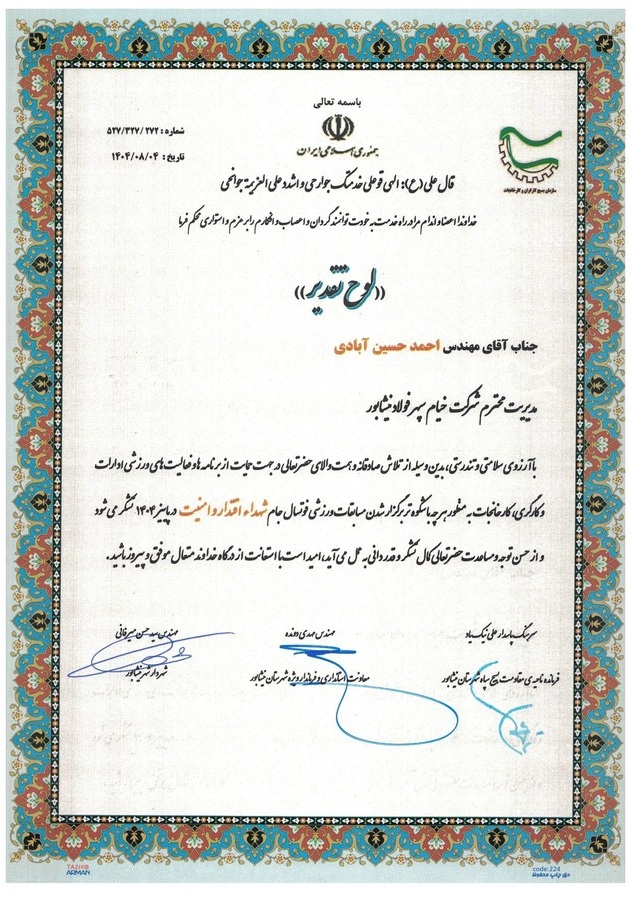 باسمه تعالی
جمهوری اسلامی ایران
شماره : ۵۲۷/۳۲۷/۲۷۲
تاریخ : ۱۴۰۴/۰۸/۰۴
سازمان بسیج کارگران و کارخانجات
قال علی (ع): الهی قو علی خدمتک جوارحی و اشدد علی العزیمة جوانحی
خداوندا اعضا و اندام مرا در راه خدمت به خودت توانمند گردان و اعصاب و افکارم را بر عزم و استواری محکم فرما
((لوح تقدیر))
جناب آقای مهندس احمد حسین آبادی
مدیریت محترم شرکت خیام سپهر فولاد نیشابور
با آرزوی سلامتی و تندرستی، بدین وسیله از تلاش صادقانه و همت والای حضرتعالی در جهت حمایت از برنامه ها و فعالیت های ورزشی ادارات
و کارگری، کارخانجات به منظور هرچه باشکوه تر برگزار شدن مسابقات ورزشی فوتسال جام شهداء اقتدار و امنیت در پاییز ۱۴۰۴ تشکر می شود
و از حسن توجه و مساعدت حضرتعالی کمال تشکر و قدردانی به عمل می آید، امید است با استعانت از درگاه خداوند متعال موفق و پیروز باشید.
سرهنگ پاسدار علی نیک یاد
فرمانده ناحیه ی مقاومت بسیج سپاه شهرستان نیشابور
مهندس مهدی دونده
معاونت استانداری و فرماندار ویژه شهرستان نیشابور
مهندس سید حسن میرفانی
شهردار شهر نیشابور
TAZHIB
ARMAN
code:224
حق چاپ محفوظ